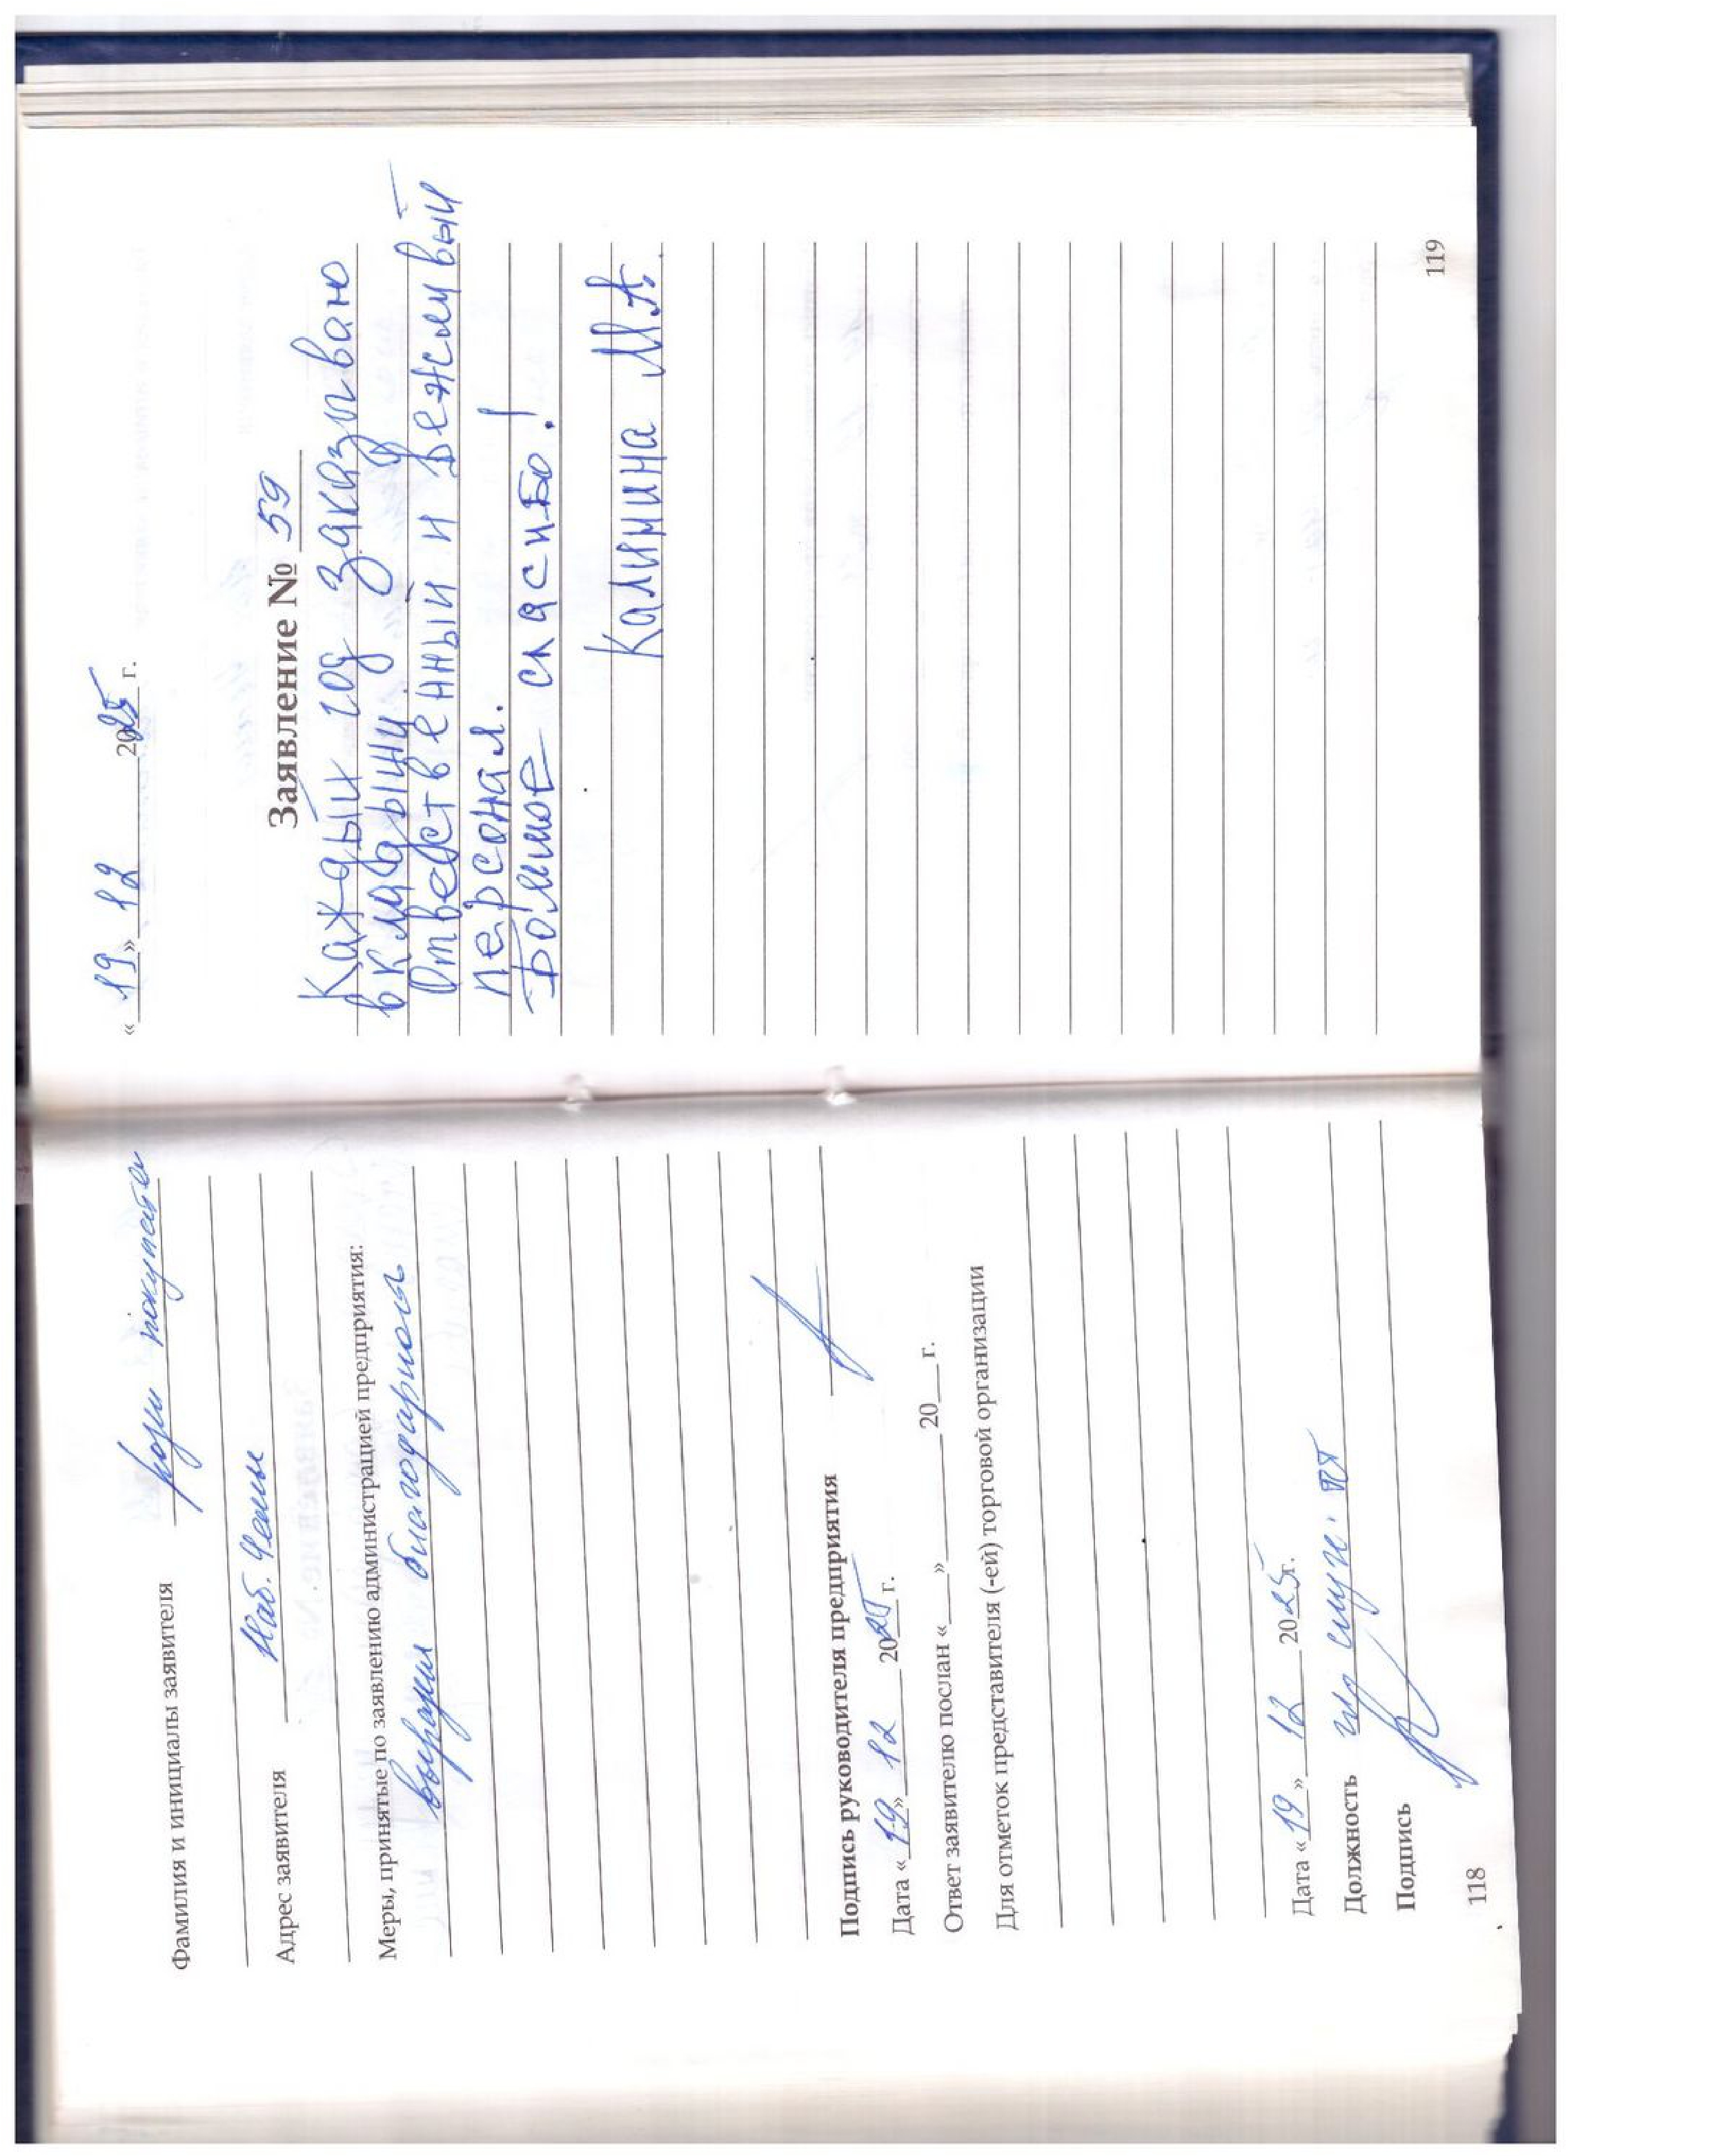 Фамилия и инициалы заявителя
Адрес заявителя Наб. Челны
Меры, принятые по заявлению администрацией предприятия:
благодарность
Подпись руководителя предприятия
Дата «19» 12 2025 г.
Ответ заявителю послан «___»________20__г.
Для отметок представителя (-ей) торговой организации
Дата «19» 12 2025г.
Должность
Подпись
118
«19» 12 2025 г.
Заявление № 59
Каждый год заказываю
вкладыши.
Ответственный и вежливый
персонал.
Большое спасибо!
Калинина М.А.
119